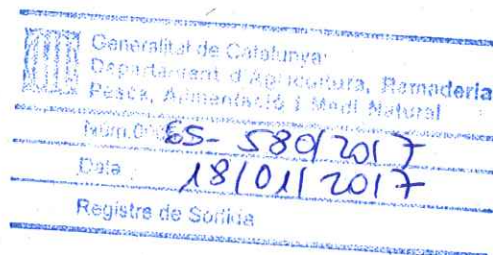 Generalitat de Catalunya
Departament d'Agricultura, Ramaderia
Pesca, Alimentació i Medi Natural
Núm. 65-580/2017
Data 18/01/2017
Registre de Sortida